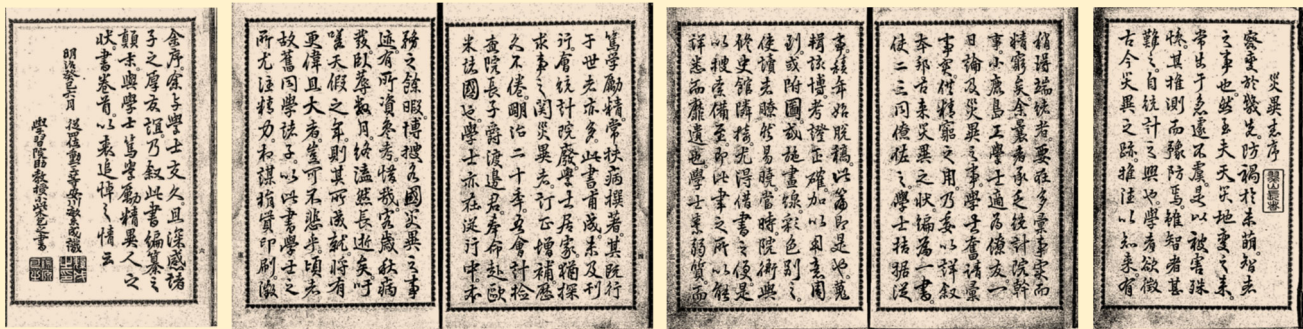 災異志序
察變於幾先防禍於未萌智者
之事也然至夫天災地變之來
常出于意遠不虞是以被害殊
惨其推測而豫防焉雖智者甚
難之自統計之興也學者欲徴
古今災異之跡推往以知來有
稍得端緒者要在多彙事實而
精覈矣余曩者承乏統計院幹
事小鹿島工學士適為僚友一
日論及災異之事學士奮請彙
事實任精覈之用乃委以詳叙
本邦古來災異之状編為一書
使二三同僚佐之學士拮据從
事年始脱稿此篇即是也蒐
輯該博考證正確加以用意周
到或附圖或施畫線彩色別之
使讀者瞭然易曉當時院衙與
修史館隣接尤得借書之便是
以捜索備至即此書之所以能
詳悉而靡遺也學士素弱質而
篤學勵精常扶病撰著其既行
于世者亦多此書甫成未及刊
行會統計院廢學士居家猶探
求事之関災異者訂正増補歴
久不倦明治二十年吾會計檢
査院長子爵渡邊君奉命赴歐
米諸國也學士亦在從行中本
務之餘暇博捜各國災異之事
迹有所資参考惜哉客歳秋病
發臥蓐數月終溘然長逝矣吁
嗟天假之年則其所成就将有
更偉且大者豈可不悲乎頃者
故舊同學諸子以此書學士之
所尤注精力相謀捐貲印刷徴
余序余於學士交久且深感諸
子之厚友誼乃叙此書編纂之
顛末與學士篤學勵精異人之
状書巻首以表追悼之情云
明治癸巳六月
安川繁成識
學習院助教授